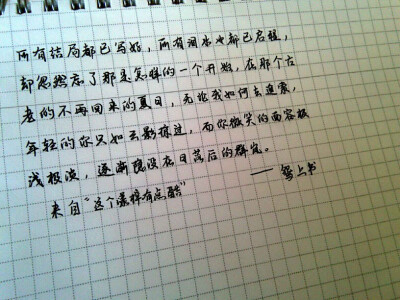 所有结局都已写好，所有泪水也都已启程，
却忽然忘了那是怎样的一个开始，在那个古
老的不再回来的夏日，无论我如何去追索，
年轻的你只如云影掠过，而你微笑的面容极
浅极淡，逐渐隐没在日落后的群岚。
——上书
来自“这个 有点酷”